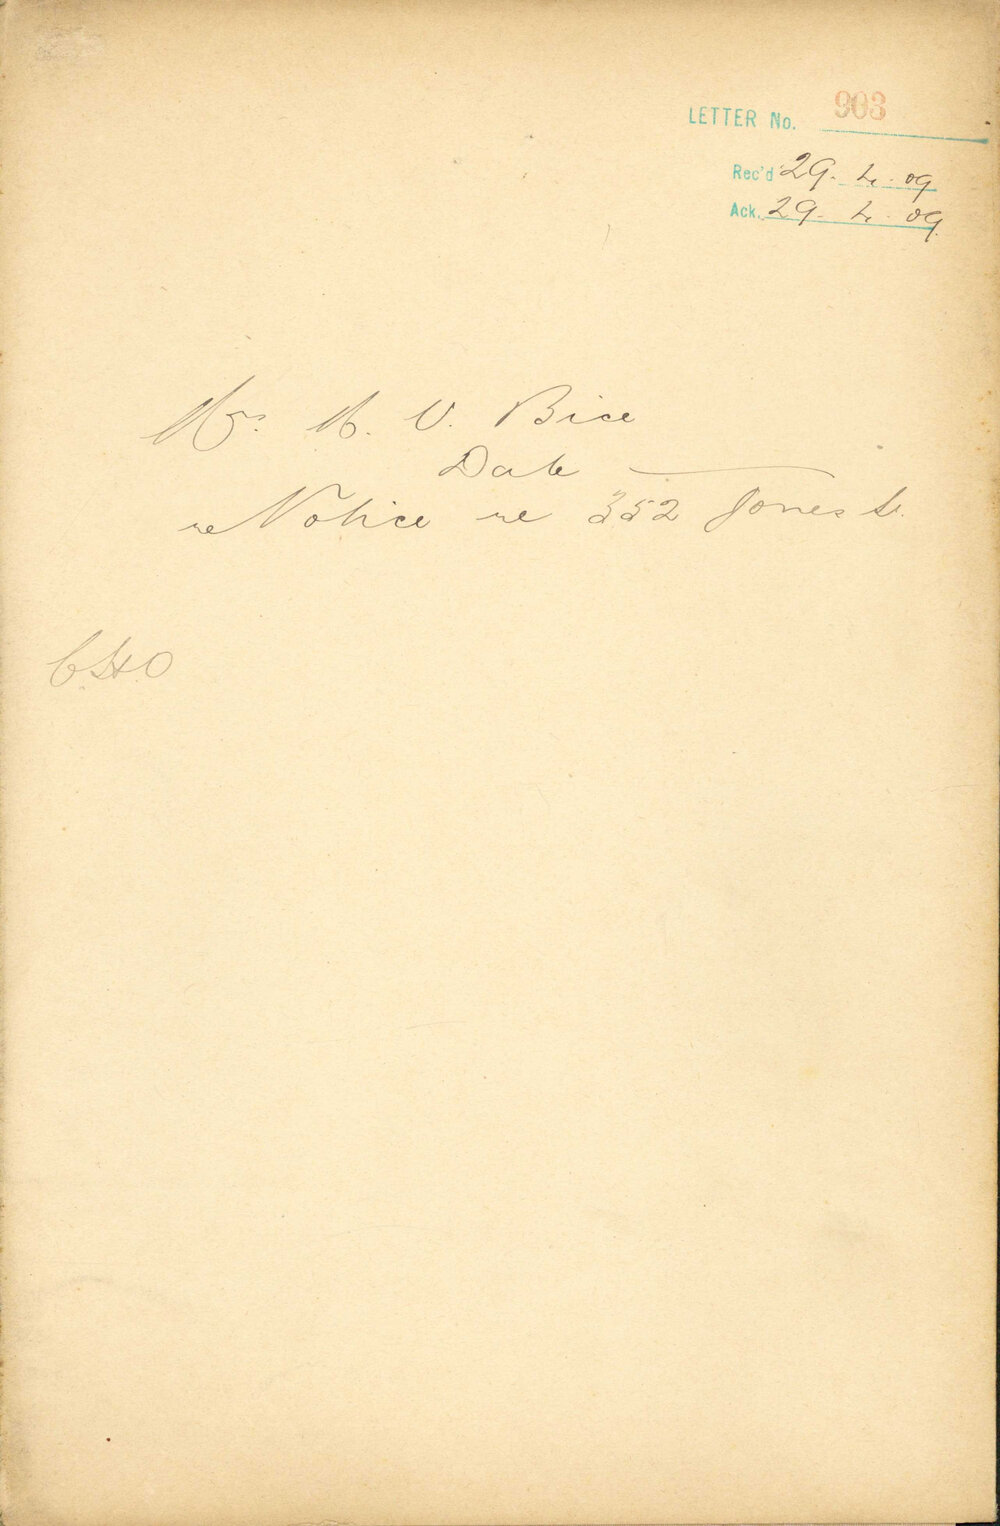 LETTER No. 903
Rec'd 29. 4. 09
Ack. 29. 4. 09.
Mrs. M. V. Bice
Date
re Notice re 352 Jones St.
C.H.O